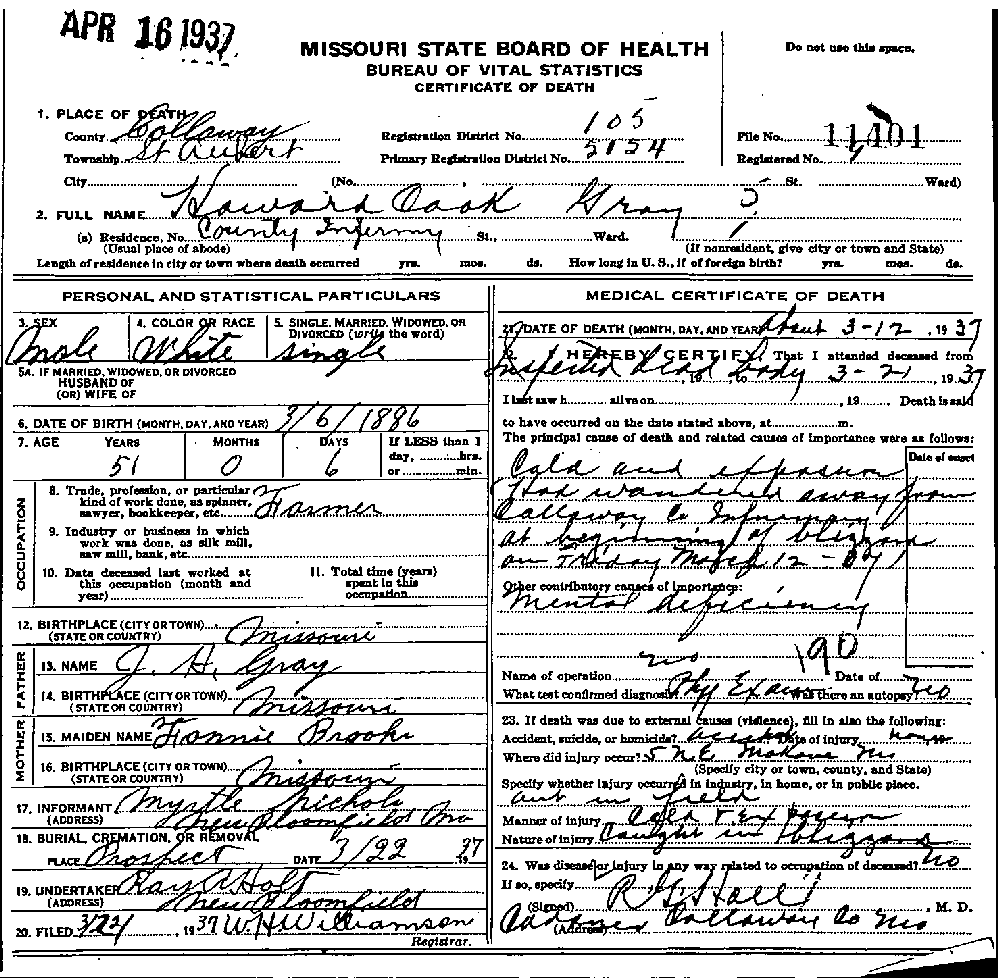 APR 16 1937
MISSOURI STATE BOARD OF HEALTH
BUREAU OF VITAL STATISTICS
CERTIFICATE OF DEATH
Do not use this space.
1. PLACE OF DEATH
County Callaway
Township St Aubert
City (No. , St. Ward)
Registration District No. 105
Primary Registration District No. 5154
File No. 11401
Registered No.
2. FULL NAME Howard Cook Gray
(a) Residence. No. County Infermy St., Ward.
(Usual place of abode) (If nonresident, give city or town and State)
Length of residence in city or town where death occurred yrs. mos. ds. How long in U. S., if of foreign birth? yrs. mos. ds.
PERSONAL AND STATISTICAL PARTICULARS
3. SEX Male
4. COLOR OR RACE White
5. SINGLE, MARRIED, WIDOWED, OR DIVORCED (write the word) single
5A. IF MARRIED, WIDOWED, OR DIVORCED
HUSBAND OF
(OR) WIFE OF
6. DATE OF BIRTH (MONTH, DAY, AND YEAR) 3/6/1886
7. AGE YEARS MONTHS DAYS If LESS than 1
day, hrs.
or min.
51 0 6
OCCUPATION
8. Trade, profession, or particular
kind of work done, as spinner,
sawyer, bookkeeper, etc. Farmer
9. Industry or business in which
work was done, as silk mill,
saw mill, bank, etc.
10. Date deceased last worked at
this occupation (month and
year)
11. Total time (years)
spent in this
occupation
12. BIRTHPLACE (CITY OR TOWN) Missouri
(STATE OR COUNTRY)
FATHER
13. NAME J. H. Gray
14. BIRTHPLACE (CITY OR TOWN) Missouri
(STATE OR COUNTRY)
MOTHER
15. MAIDEN NAME Fannie Brooks
16. BIRTHPLACE (CITY OR TOWN) Missouri
(STATE OR COUNTRY)
17. INFORMANT Myrtle Nichols
(ADDRESS) New Bloomfield Mo
18. BURIAL, CREMATION, OR REMOVAL
PLACE Prospect DATE 3/22 1937
19. UNDERTAKER Ray A Holt
(ADDRESS) New Bloomfield
20. FILED 3/24, 1937 W. H. Williamson
Registrar.
MEDICAL CERTIFICATE OF DEATH
21. DATE OF DEATH (MONTH, DAY, AND YEAR) About 3-12, 1937
I HEREBY CERTIFY, That I attended deceased from
Inspected dead body 3-21, 1937
I last saw h alive on , 19 Death is said
to have occurred on the date stated above, at m.
The principal cause of death and related causes of importance were as follows:
Date of onset
Cold and exposure
Had wandered away from
Callaway Co Infirmary
at beginning of blizzard
on Friday March 12 - 37
Other contributory causes of importance:
Mental deficiency
190
Name of operation no Date of
What test confirmed diagnosis? Phys Exam Was there an autopsy? no
23. If death was due to external causes (violence), fill in also the following:
Accident, suicide, or homicide? Accident Date of injury
Where did injury occur? 5 N.E. Mokane Mo
(Specify city or town, county, and State)
Specify whether injury occurred in industry, in home, or in public place.
out in field
Manner of injury Cold & Exposure
Nature of injury Caught in blizzard
24. Was disease or injury in any way related to occupation of deceased? no
If so, specify
(Signed) , M. D.
(Address) Callaway Co Mo